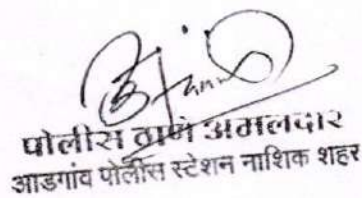 पोलीस ठाणे अमलदार
आडगांव पोलीस स्टेशन नाशिक शहर